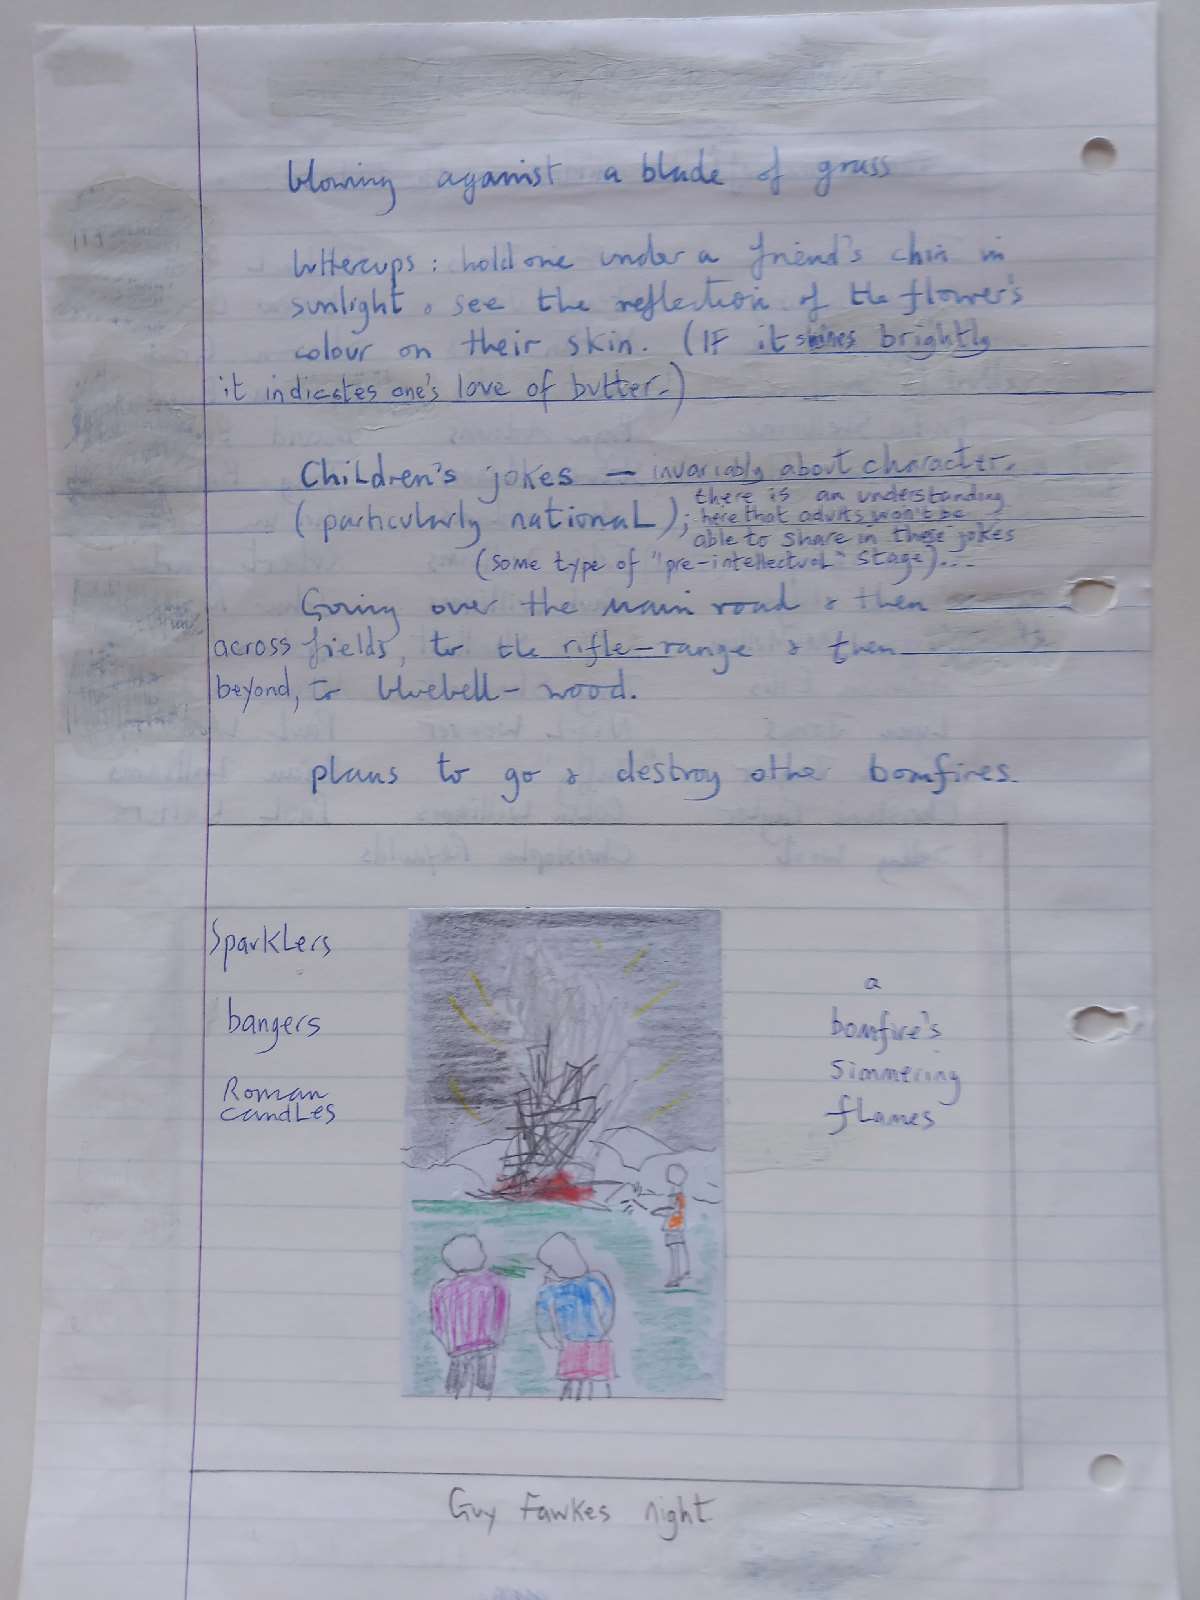 blowing against a blade of grass
buttercups: hold one under a friend's chin in
sunlight & see the reflection of the flower's
colour on their skin. (IF it shines brightly
it indicates one's love of butter.)
Children's jokes — invariably about character.
(particularly national); there is an understanding
here that adults won't be
able to share in these jokes
(some type of "pre-intellectual" stage)...
Going over the main road & then
across fields, to the rifle-range & then
beyond, to bluebell-wood.
plans to go & destroy other bomfires.
Sparklers
bangers
Roman
candles
a
bomfire's
simmering
flames
Guy Fawkes night